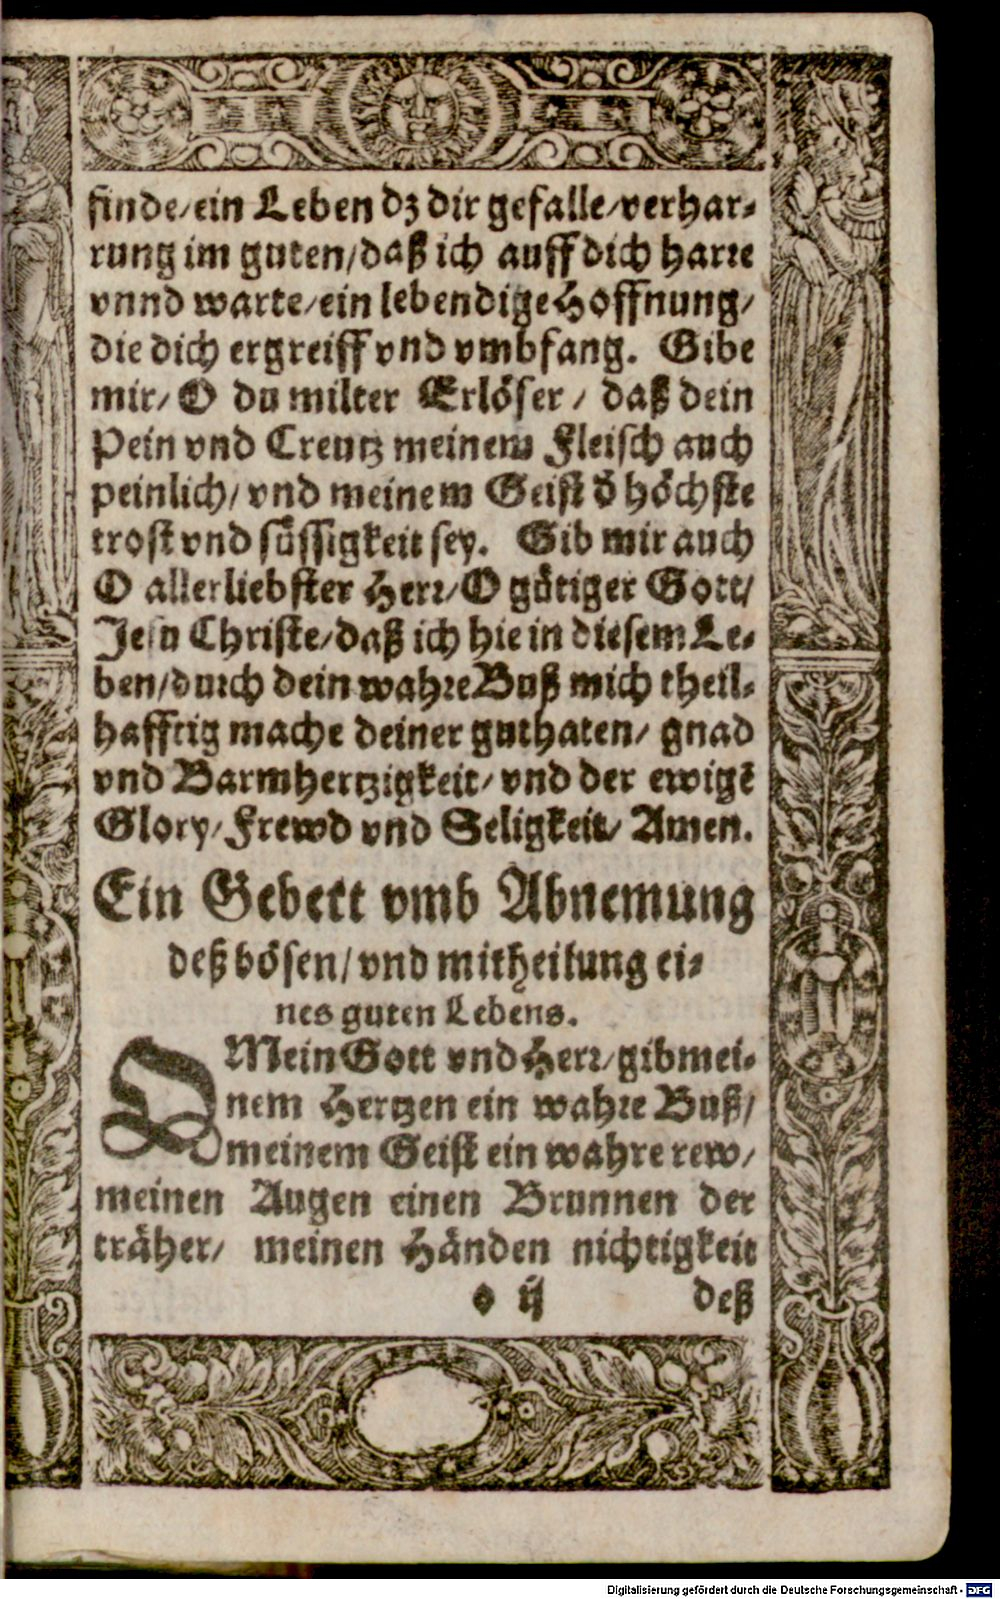 finde/ein Leben dz dir gefalle/verhar⸗
rung im guten/daß ich auff dich harre
vnnd warte/ein lebendige Hoffnung/
die dich ergreiff vnd vmbfang. Gibe
mir/O du milter Erlöser/ daß dein
Pein vnd Creutz meinem Fleisch auch
peinlich/vnd meinem Geist d̄ höchste
trost vnd süssigkeit sey. Gib mir auch
O allerliebster Herr/O gütiger Gott/
Jesu Christe/daß ich hie in diesem Le⸗
ben/durch dein wahre Buß mich theil⸗
hafftig mache deiner guthaten/ gnad
vnd Barmhertzigkeit/vnd der ewigē
Glory/Frewd vnd Seligkeit/ Amen.
Ein Gebett vmb Abnemung
deß bösen/vnd mitheilung ei⸗
nes guten Lebens.
O Mein Gott vnd Herr/gib mei⸗
nem Hertzen ein wahre Buß/
meinem Geist ein wahre rew/
meinen Augen einen Brunnen der
träher/ meinen Händen nichtigkeit
o ij deß
Digitalisierung gefördert durch die Deutsche Forschungsgemeinschaft - DFG